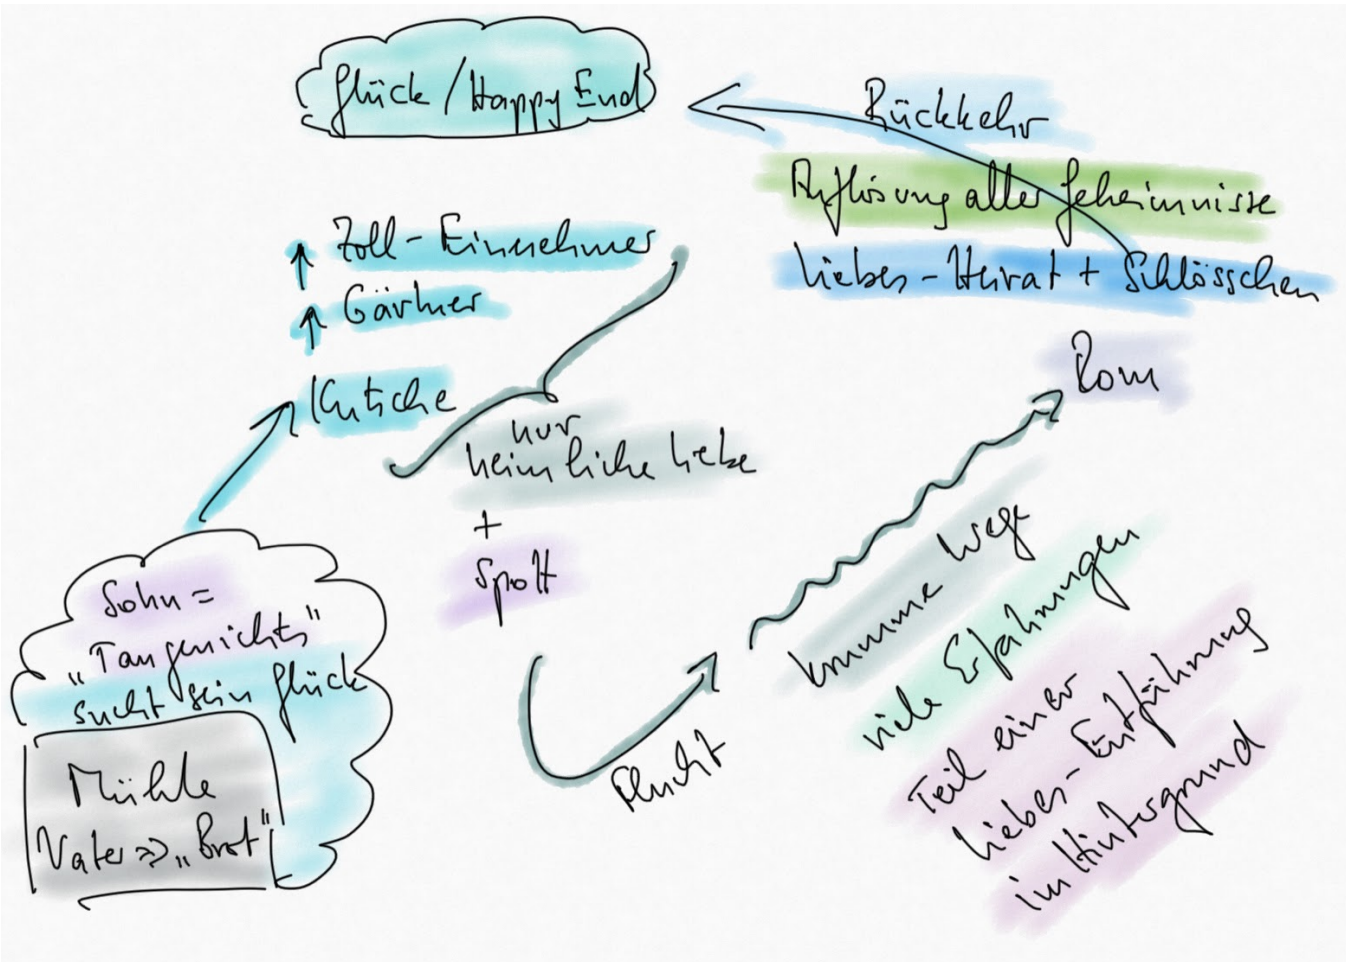 Glück / Happy End
Rückkehr
Auflösung aller Geheimnisse
Liebes-Heirat + Schlösschen
Zoll-Einnehmer
Gärtner
Kutsche
Rom
nur
heimliche Liebe
+
Spott
Sohn =
„Taugenichts"
sucht sein Glück
Mühle
Vater => „Brot"
Flucht
krumme Wege
viele Erfahrungen
Teil einer
Liebes-Entführung
im Hintergrund